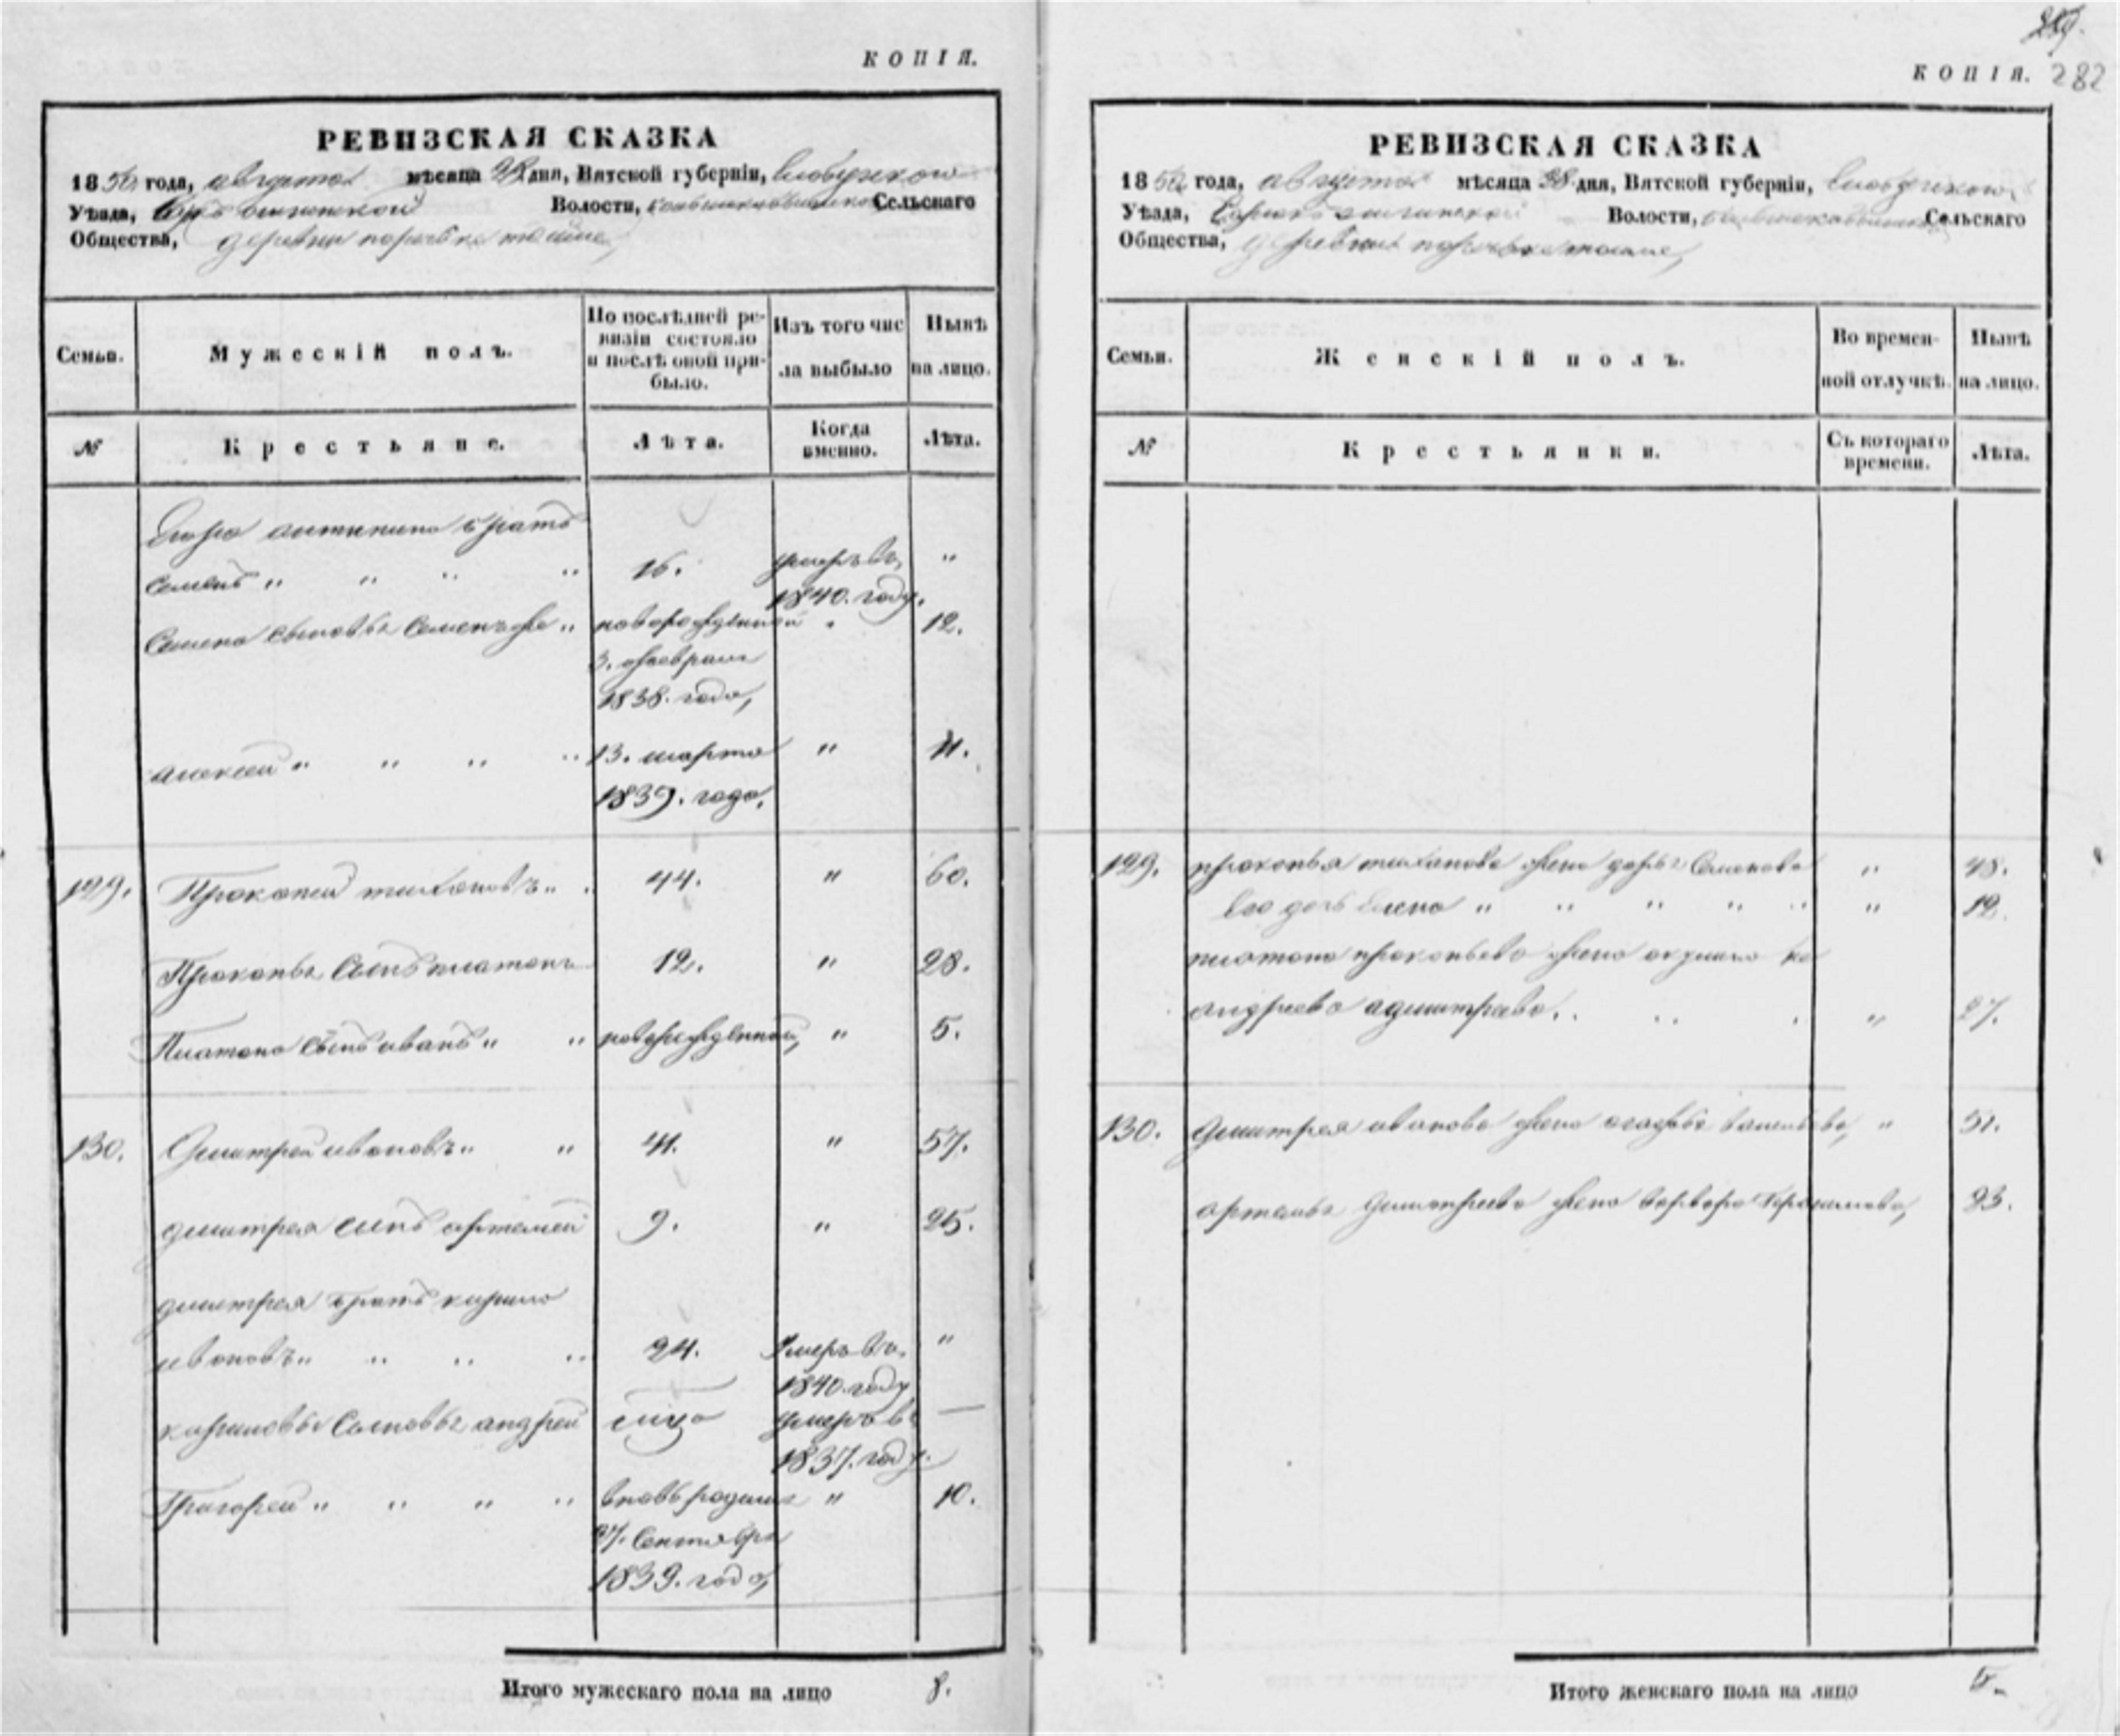 КОПІЯ.
РЕВИЗСКАЯ СКАЗКА
1850 года, августа мѣсяца 28 дня, Вятской губерніи, Слободскаго
Уѣзда, Волости, Сельскаго
Общества, деревни
Семьи.
Мужескій полъ.
По послѣдней ре-
визіи состояло
и послѣ оной при-
было.
Изъ того чис
ла выбыло
Нынѣ
на лицо.
№
Крестьяне.
Лѣта.
Когда
именно.
Лѣта.
антипина братъ
Семенъ " " " " 16. умеръ въ "
1840. году.
Семена сыновья " новорожденной " 12.
3. февраля
1838. года,
алексей " " " " 13. марта " 11.
1839. года.
129. Прокопей тихановъ " " 44. " 60.
Прокопья сынъ платонъ 12. " 28.
Платона сынъ иванъ " " новорожденной, " 5.
130. Дмитрей ивановъ " " 41. " 57.
дмитрея сынъ артемей 9. " 25.
дмитрея братъ кирило
ивановъ " " " " 24. умеръ въ "
1840. году
кириловы сыновья андрей умеръ въ —
1837. году.
Григорей " " " " вновь родился " 10.
27. Сентября
1839. года,
Итого мужескаго пола на лицо 8.
КОПІЯ. 282
РЕВИЗСКАЯ СКАЗКА
1850 года, августа мѣсяца 28 дня, Вятской губерніи, Слободскаго
Уѣзда, Волости, Сельскаго
Общества, деревни
Семьи.
Женскій полъ.
Во времен-
ной отлучкѣ.
Нынѣ
на лицо.
№
Крестьянки.
Съ котораго
времени.
Лѣта.
129. прокопья тиханова жена дарья Семенова " 48.
Его дочь Елена " " " " " " 12.
платона прокопьева жена акулина
андреева " 27.
130. дмитрея иванова жена агафья васильева, " 51.
артемья дмитриева жена варвара Герасимова, 23.
Итого женскаго пола на лицо 5.